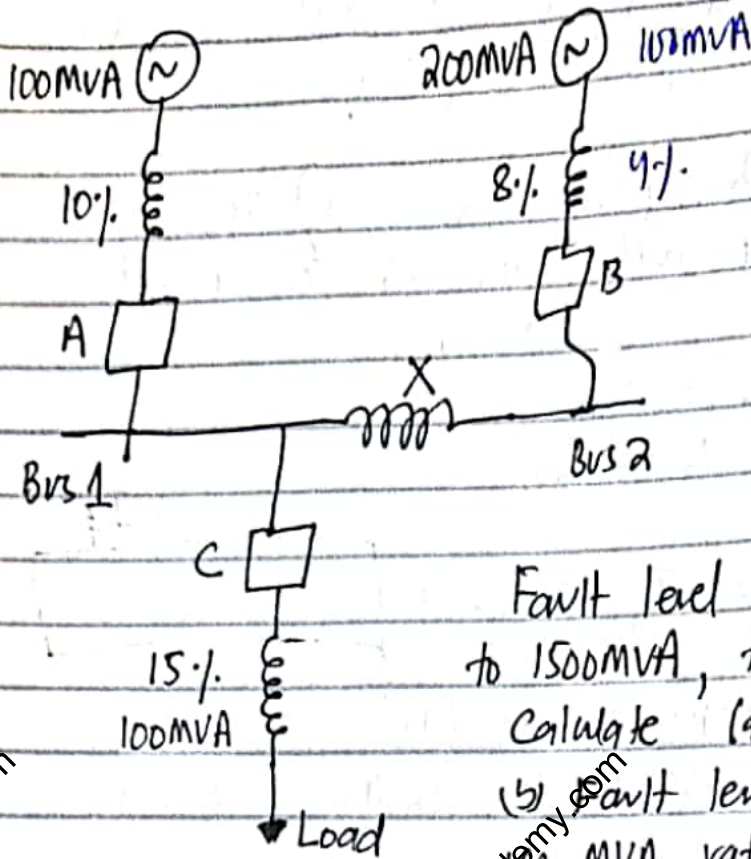 100MVA
200MVA
100MVA
10%
8%
4%
A
B
X
Bus 1
Bus 2
C
15%
100MVA
Load
Fault level
to 1500MVA,
Calulate
(b) Fault
MVA